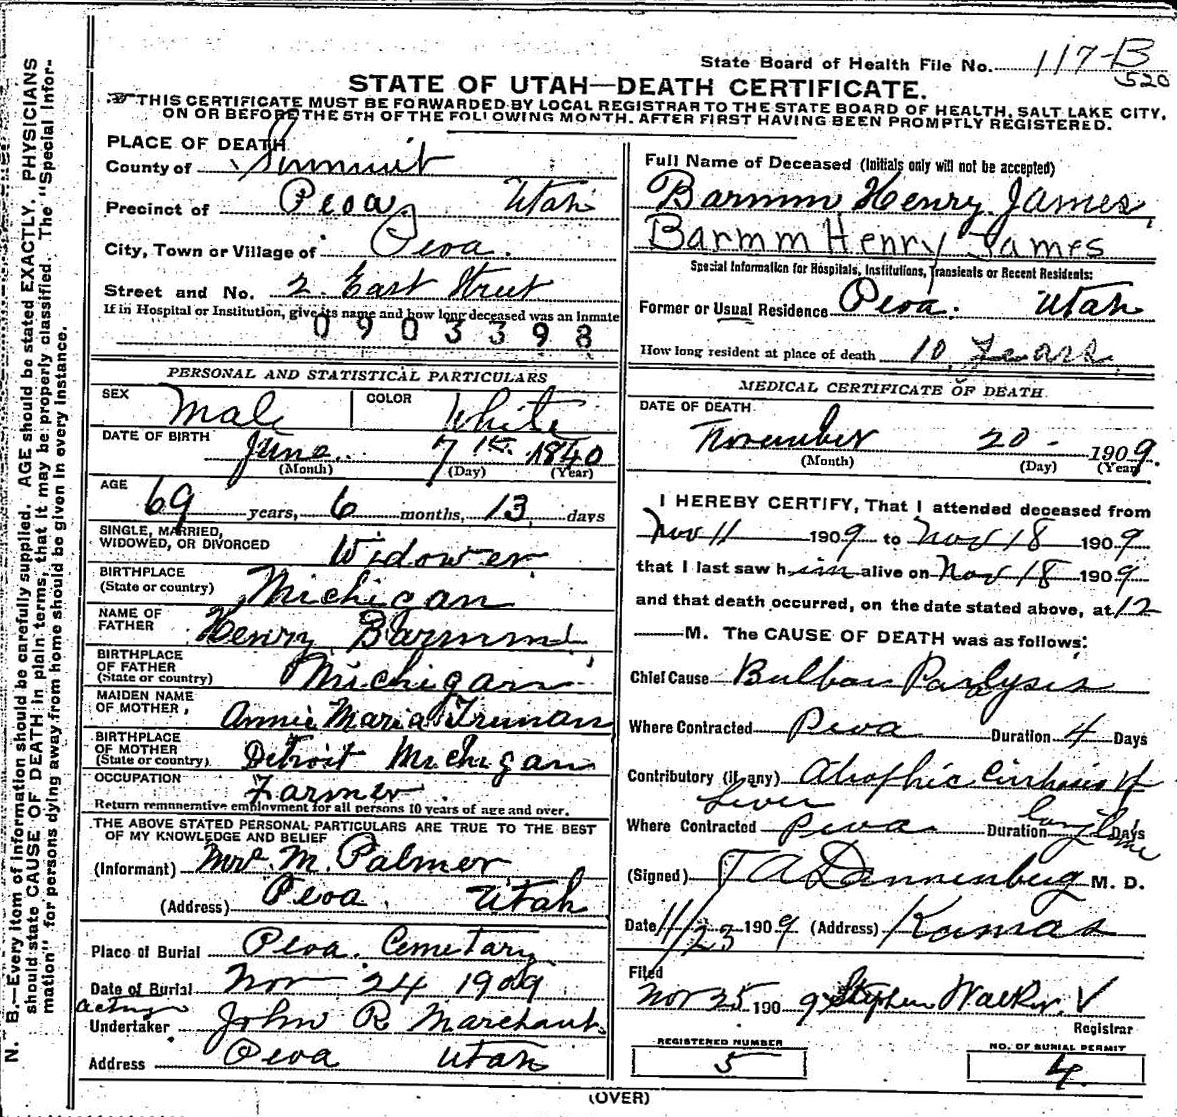 State Board of Health File No. 117-B
520
STATE OF UTAH—DEATH CERTIFICATE.
THIS CERTIFICATE MUST BE FORWARDED BY LOCAL REGISTRAR TO THE STATE BOARD OF HEALTH, SALT LAKE CITY,
ON OR BEFORE THE 5TH OF THE FOLLOWING MONTH. AFTER FIRST HAVING BEEN PROMPTLY REGISTERED.
PLACE OF DEATH
County of Summit
Precinct of Peoa Utah
City, Town or Village of Peoa.
Street and No. 2 East Street
If in Hospital or Institution, give its name and how long deceased was an inmate
0903398
PERSONAL AND STATISTICAL PARTICULARS
SEX Male COLOR White
DATE OF BIRTH June 7th 1840
(Month) (Day) (Year)
AGE 69 years, 6 months, 13 days
SINGLE, MARRIED,
WIDOWED, OR DIVORCED Widower
BIRTHPLACE
(State or country) Michigan
NAME OF
FATHER Henry Barmm
BIRTHPLACE
OF FATHER
(State or country) Michigan
MAIDEN NAME
OF MOTHER, Annie Maria Truman
BIRTHPLACE
OF MOTHER
(State or country) Detroit Michigan
OCCUPATION
Farmer
Return remunerative employment for all persons 10 years of age and over.
THE ABOVE STATED PERSONAL PARTICULARS ARE TRUE TO THE BEST
OF MY KNOWLEDGE AND BELIEF
(Informant) Mrs. M. Palmer
(Address) Peoa, Utah
Place of Burial Peoa. Cemetary
Date of Burial Nov 24 1909
acting
Undertaker John R Marchant
Address Peoa Utah
Full Name of Deceased (Initials only will not be accepted)
Barmm Henry James
Barmm Henry James
Special Information for Hospitals, Institutions, Transients or Recent Residents:
Former or Usual Residence Peoa. Utah
How long resident at place of death 10 Years
MEDICAL CERTIFICATE OF DEATH
DATE OF DEATH
November 20 - 1909.
(Month) (Day) (Year)
I HEREBY CERTIFY, That I attended deceased from
Nov 11 1909 to Nov 18 1909
that I last saw him alive on Nov 18 1909
and that death occurred, on the date stated above, at 12
M. The CAUSE OF DEATH was as follows:
Chief Cause Bulbar Paralysis
Where Contracted Peoa Duration 4 Days
Contributory (if any) Atrophic Cirrhosis of
Liver
Where Contracted Peoa Duration long time Days
(Signed) T A Dannenberg M. D.
Date 11/23 1909 (Address) Kamas
Filed
Nov 25 1909 Stephen Walker. V
Registrar
REGISTERED NUMBER
5
NO. OF BURIAL PERMIT
4.
(OVER)
N. B.—Every item of information should be carefully supplied. AGE should be stated EXACTLY. PHYSICIANS
should state CAUSE OF DEATH in plain terms, that it may be properly classified. The "Special Infor-
mation" for persons dying away from home should be given in every instance.